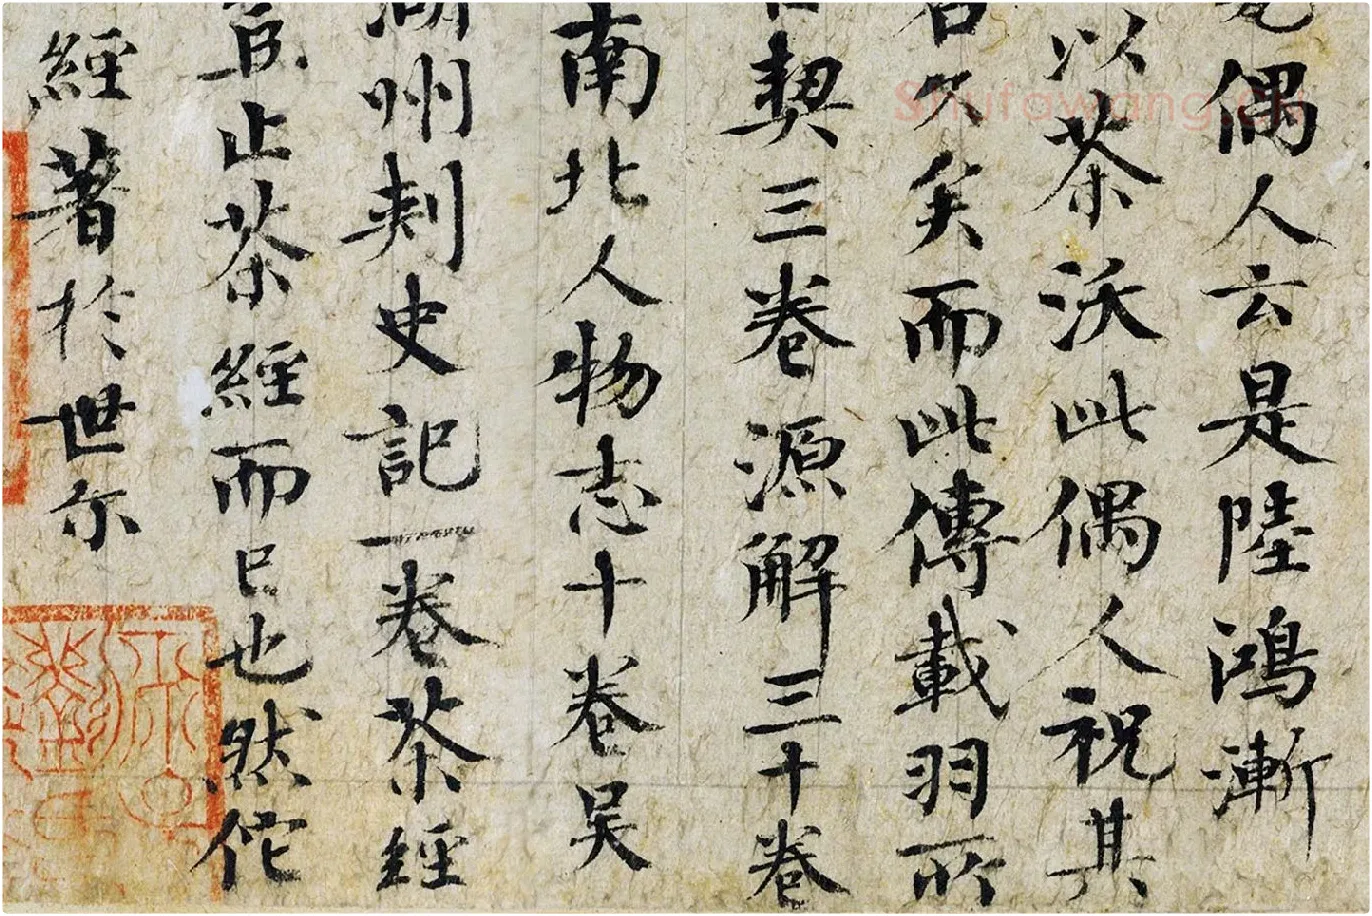 偶人云是陸鴻漸
以茶沃此偶人祝其
名久矣而此傳載羽所
契三卷源解三十卷
南北人物志十卷吴
湖州刾史記一卷茶經
止茶經而已也然佗
經著於世尔
Shufawang.cn